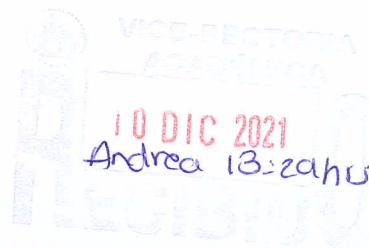 VICE-RECTORIA
ACADÉMICA
10 DIC 2021
Andrea 13:29hrs
RECIBIDO